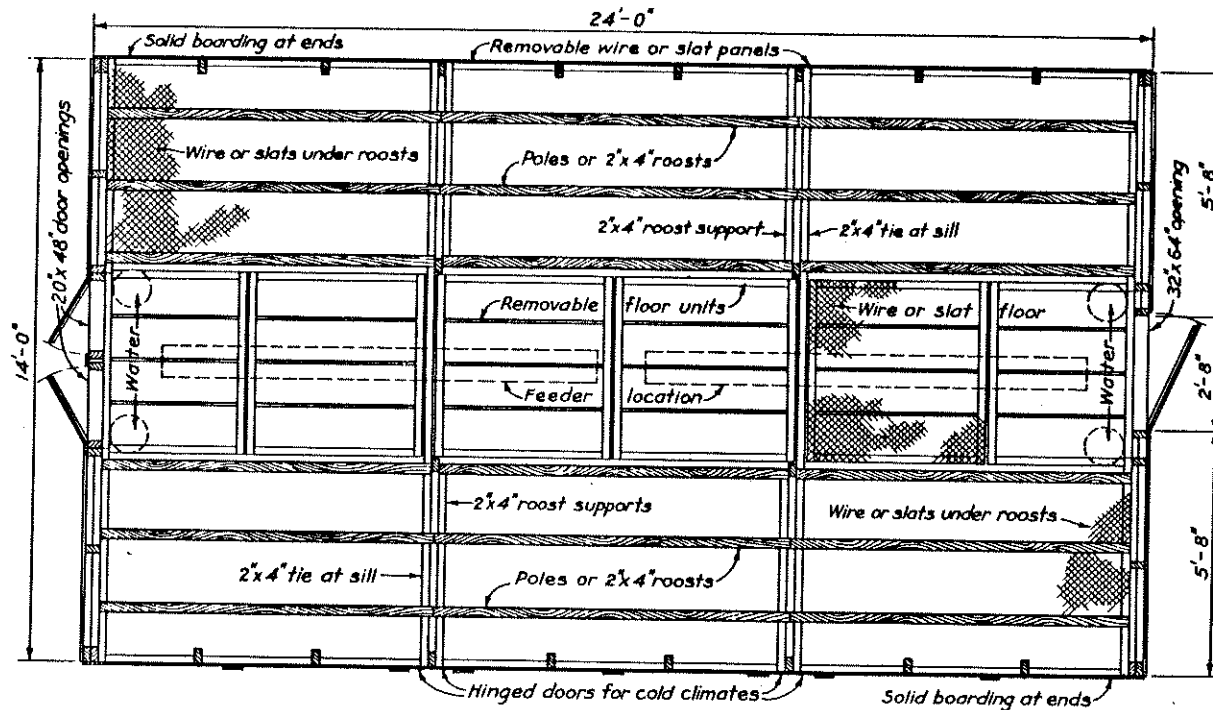 24'-0"
Solid boarding at ends
Removable wire or slat panels
20"x 48" door openings
Wire or slats under roosts
Poles or 2"x 4" roosts
5'-8"
2"x4" roost support
2"x4" tie at sill
32"x 64" opening
14'-0"
Water
Removable floor units
Wire or slat floor
Water
2'-8"
Feeder location
2"x4" roost supports
Wire or slats under roosts
2"x 4" tie at sill
Poles or 2"x 4" roosts
5'-8"
Hinged doors for cold climates
Solid boarding at ends